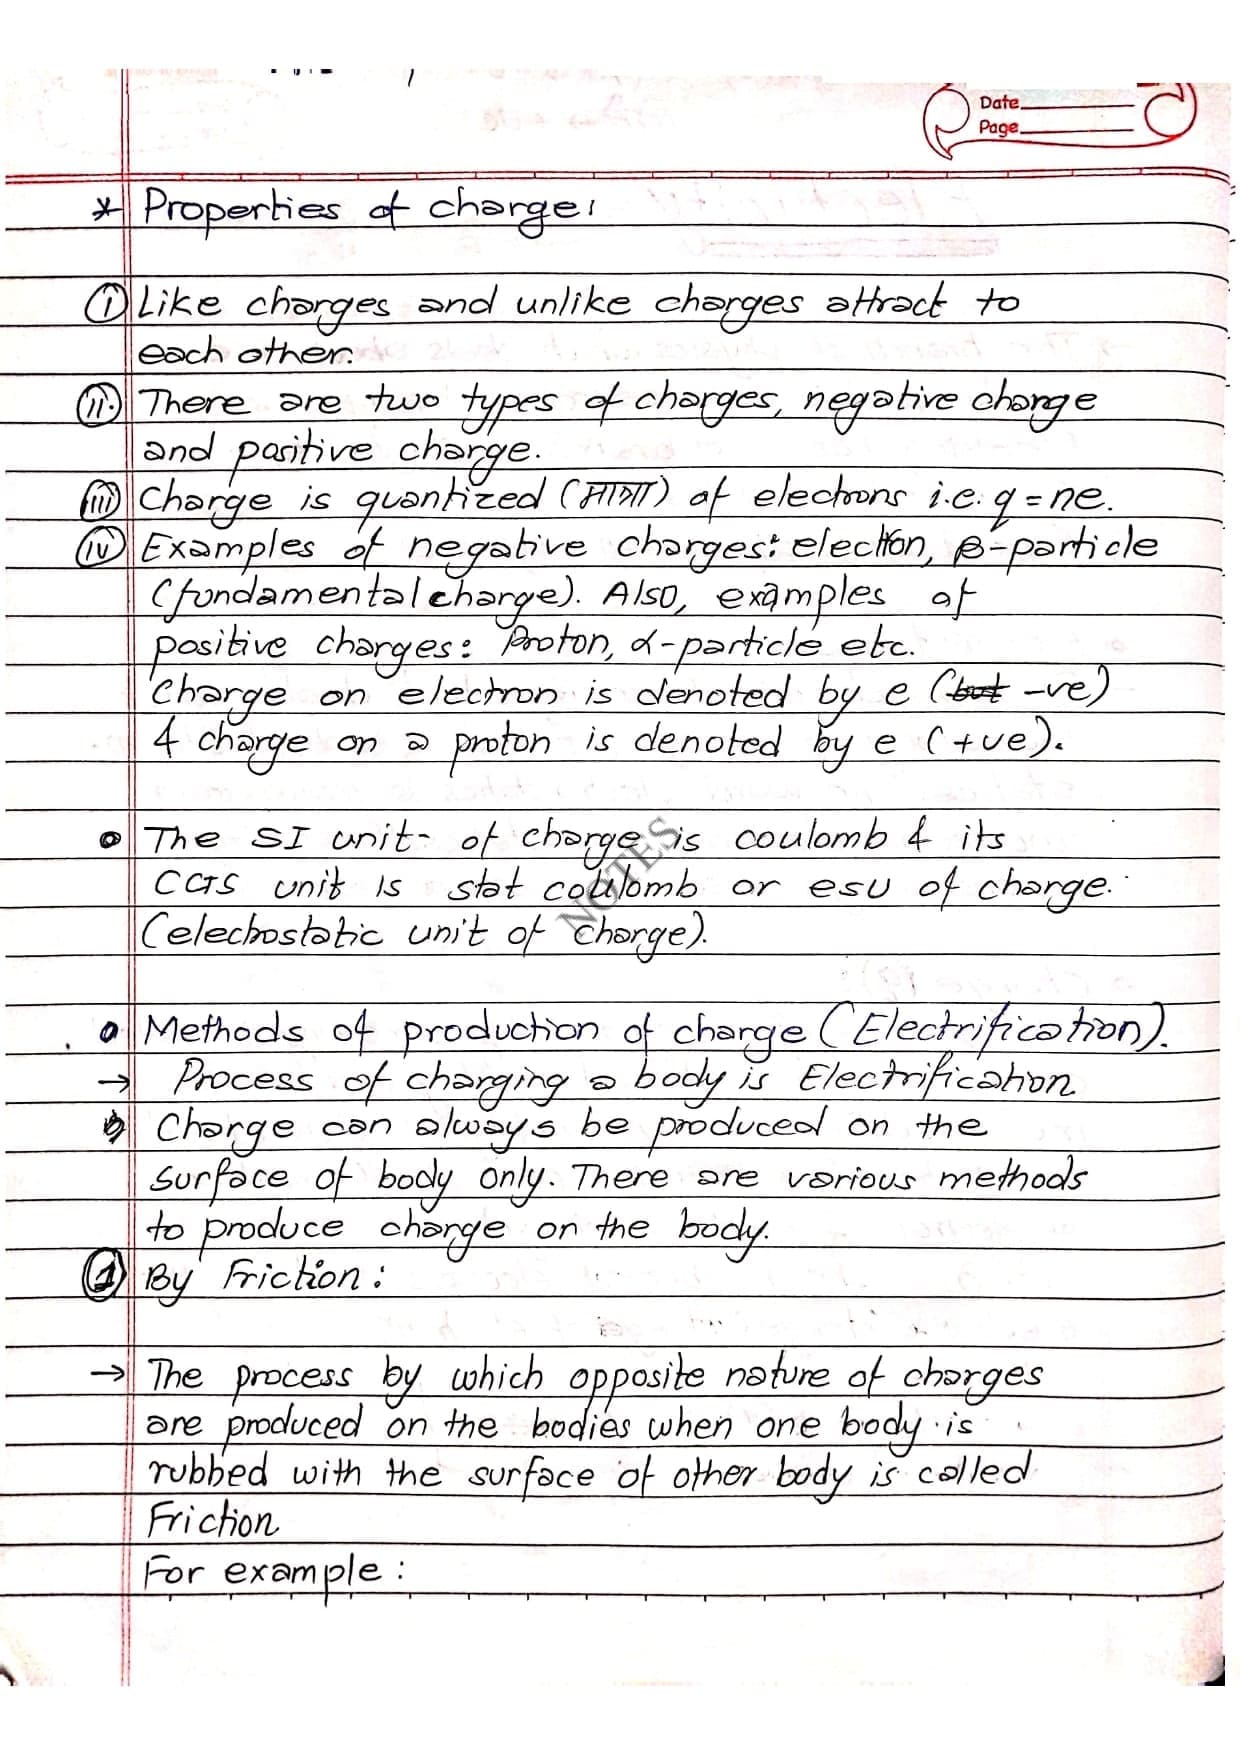 Date
Page
* Properties of charge:
(i) Like charges and unlike charges attract to
each other.
(ii) There are two types of charges, negative charge
and positive charge.
(iii) Charge is quantized (मात्रा) of electrons i.e. q = ne.
(iv) Examples of negative charges: electron, β-particle
(fundamental charge). Also, examples of
positive charges: Proton, α-particle etc.
Charge on electron is denoted by e (but -ve)
& charge on a proton is denoted by e (+ve).
The SI unit of charge is coulomb & its
CGS unit is stat coulomb or esu of charge.
(electrostatic unit of charge).
NOTES
Methods of production of charge (Electrification).
→ Process of charging a body is Electrification
Charge can always be produced on the
surface of body only. There are various methods
to produce charge on the body.
(1) By Friction:
→ The process by which opposite nature of charges
are produced on the bodies when one body is
rubbed with the surface of other body is called
Friction
For example: